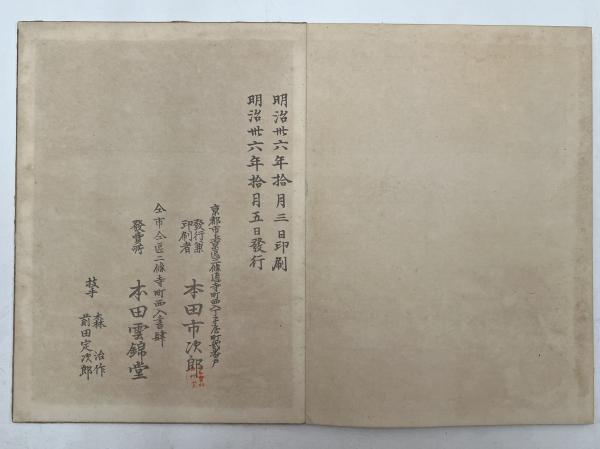 明治卅六年拾月三日印刷
明治卅六年拾月五日發行
京都市上京區二條通寺町西入丁子屋町貳番戶
發行兼
印刷者
本田市次郎
仝市仝區二條寺町西入書肆
發賣所
本田雲錦堂
技手
森治作
前田定次郎